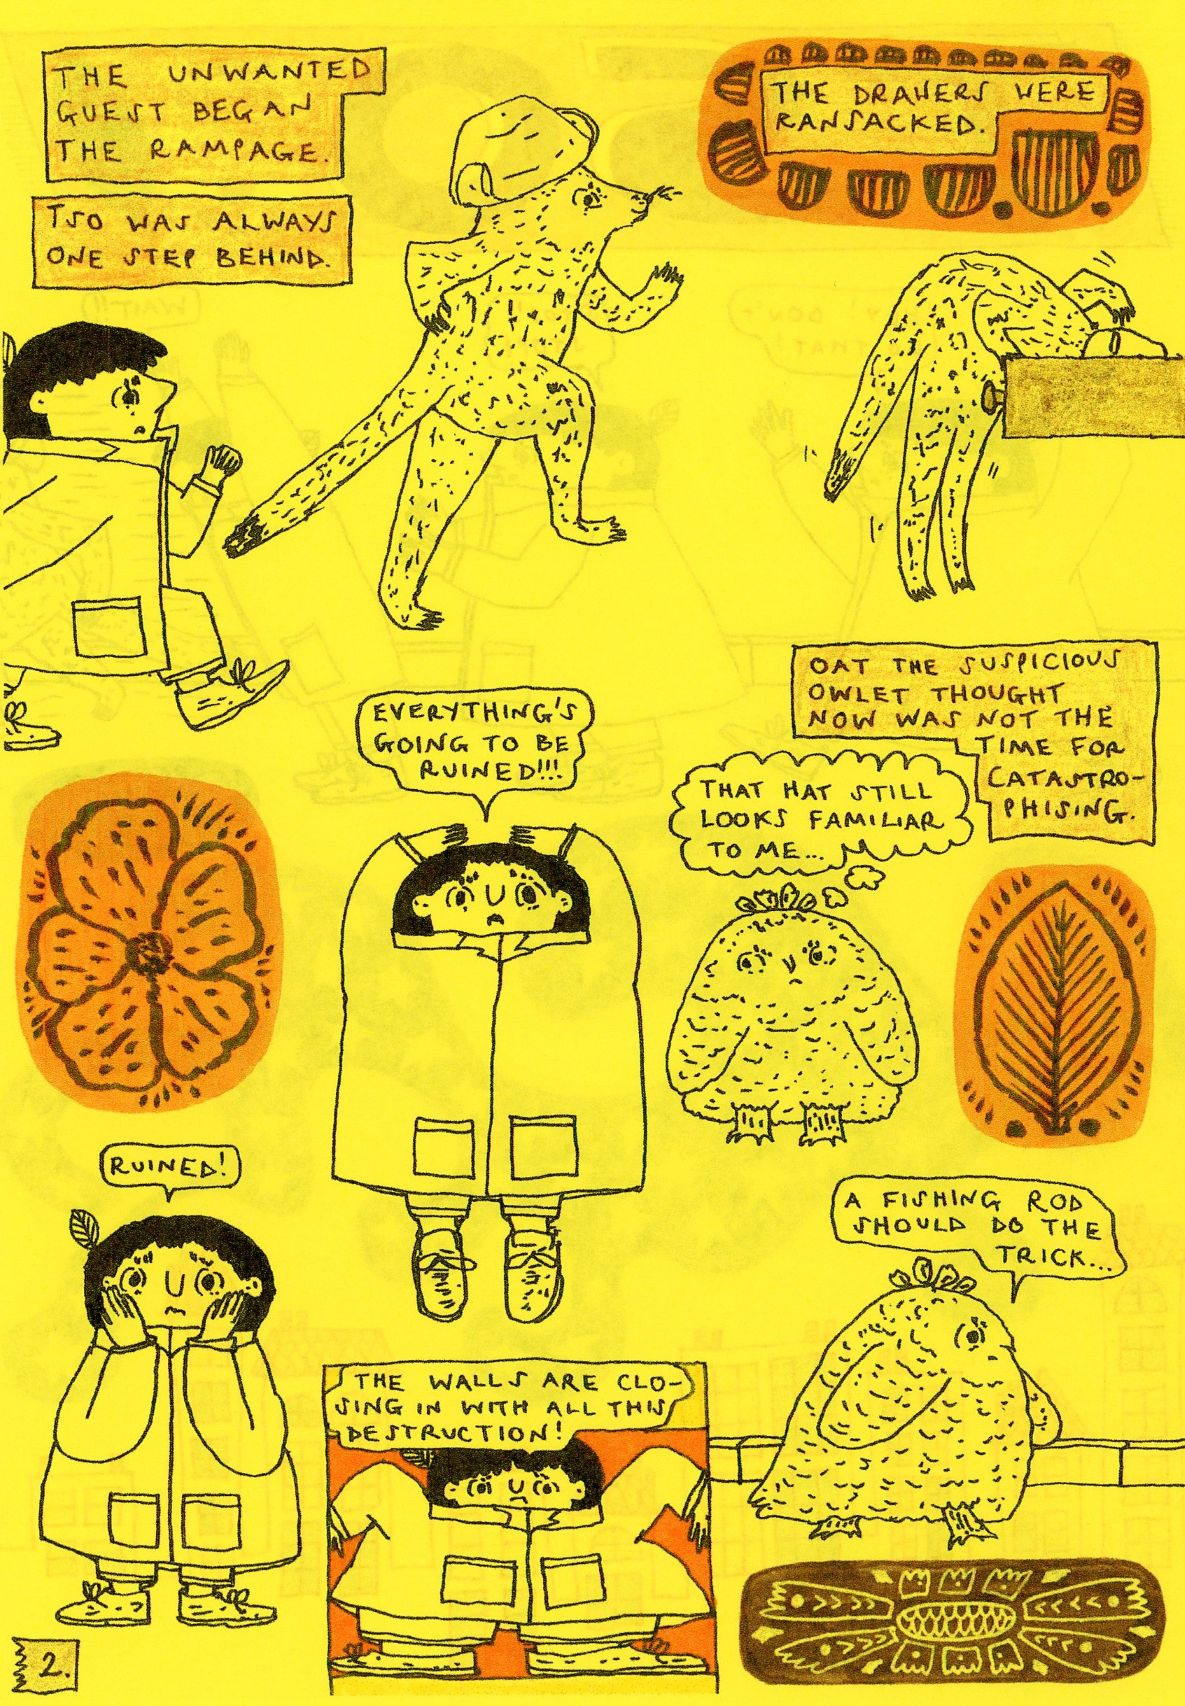 THE UNWANTED
GUEST BEGAN
THE RAMPAGE.
TSO WAS ALWAYS
ONE STEP BEHIND.
THE DRAWERS WERE
RANSACKED.
EVERYTHING'S
GOING TO BE
RUINED!!!
OAT THE SUSPICIOUS
OWLET THOUGHT
NOW WAS NOT THE
TIME FOR
CATASTRO-
PHISING.
THAT HAT STILL
LOOKS FAMILIAR
TO ME...
RUINED!
THE WALLS ARE CLO-
SING IN WITH ALL THIS
DESTRUCTION!
A FISHING ROD
SHOULD DO THE
TRICK...
2.